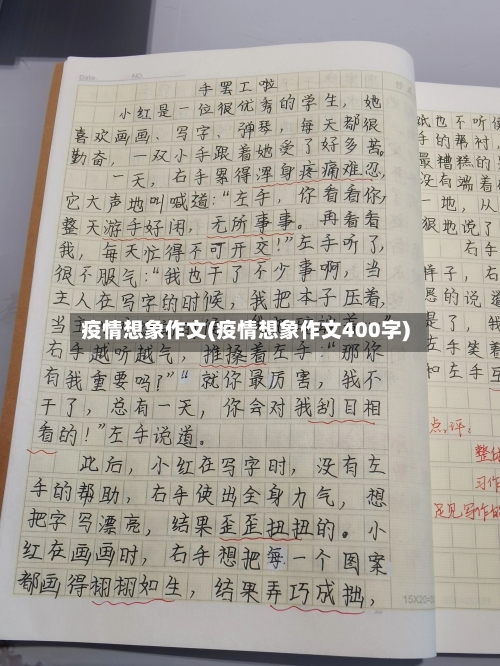 手罢工啦
小红是一位很优秀的学生，她
喜欢画画、写字、弹琴，每天都很
勤奋，一双小手跟着她受了好多苦。
一天，右手累得浑身疼痛难忍，
它大声地叫喊道：“左手，你看看你，
整天游手好闲，无所事事。再看看
我，每天忙得不可开交！”左手听了，
很不服气：“我也干了不少事啊，当
主人在写字的时候，我把本子压着，
疫情想象作文(疫情想象作文400字)
右手越听越气，推搡着左手：“那你
有我重要吗？”“就你最厉害，我不
干了，总有一天，你会对我刮目相
看的！”左手说道。
此后，小红在写字时，没有左
手的帮助，右手使出全身力气，想
把字写漂亮，结果歪歪扭扭的。小
红在画画时，右手想把每一个图案
都画得栩栩如生，结果弄巧成拙，
15X20=
纸也不听使
手的帮衬，
最糟糕的
没有端着
一地，从
狠地说了
右手
样子，右
愚的说道
左手笑着
和左手互
点评：
整体
习作
足见写作的